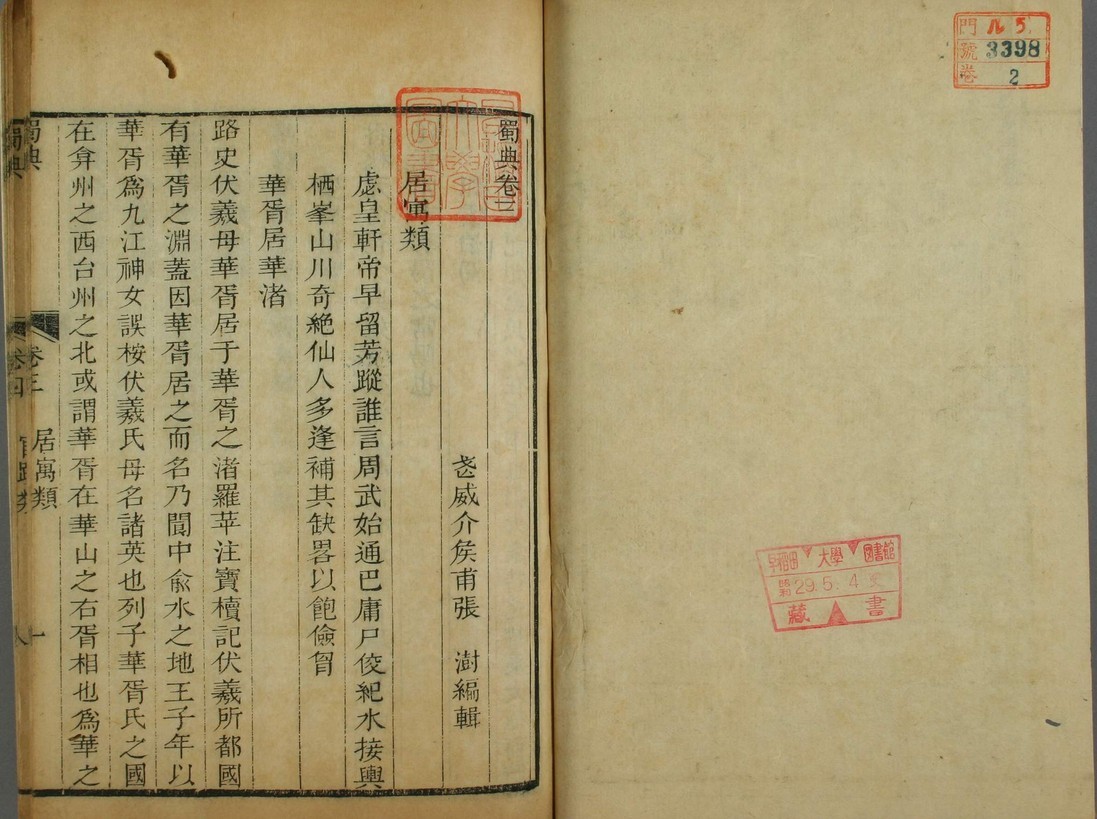 門 ル5
號 3398
卷 2
早稻田大學圖書館
昭和 29.5.4
藏書
蜀典卷三
武威介侯甫張 澍編輯
居寓類
虙皇軒帝早留芳蹤誰言周武始通巴庸尸俊紀水接輿
栖峯山川奇絶仙人多逢補其缺畧以飽儉胷
華胥居華渚
路史伏羲母華胥居于華胥之渚羅苹注寶櫝記伏羲所都國
有華胥之淵蓋因華胥居之而名乃閬中俞水之地王子年以
華胥爲九江神女誤桉伏羲氏母名諸英也列子華胥氏之國
在弇州之西台州之北或謂華胥在華山之右胥相也爲華之
蜀典 卷三 居寓類 一
蜀典 卷四 八